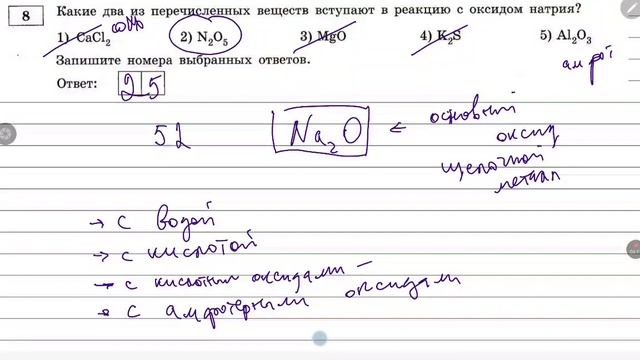 8 Какие два из перечисленных веществ вступают в реакцию с оксидом натрия?
1) CaCl₂ соль 2) N₂O₅ 3) MgO 4) K₂S 5) Al₂O₃
Запишите номера выбранных ответов.
Ответ: 25
52
Na₂O
основный
оксид
щелочной
металл
→ с водой
→ с кислотой
→ с кислотными оксидами
→ с амфотерными оксидами